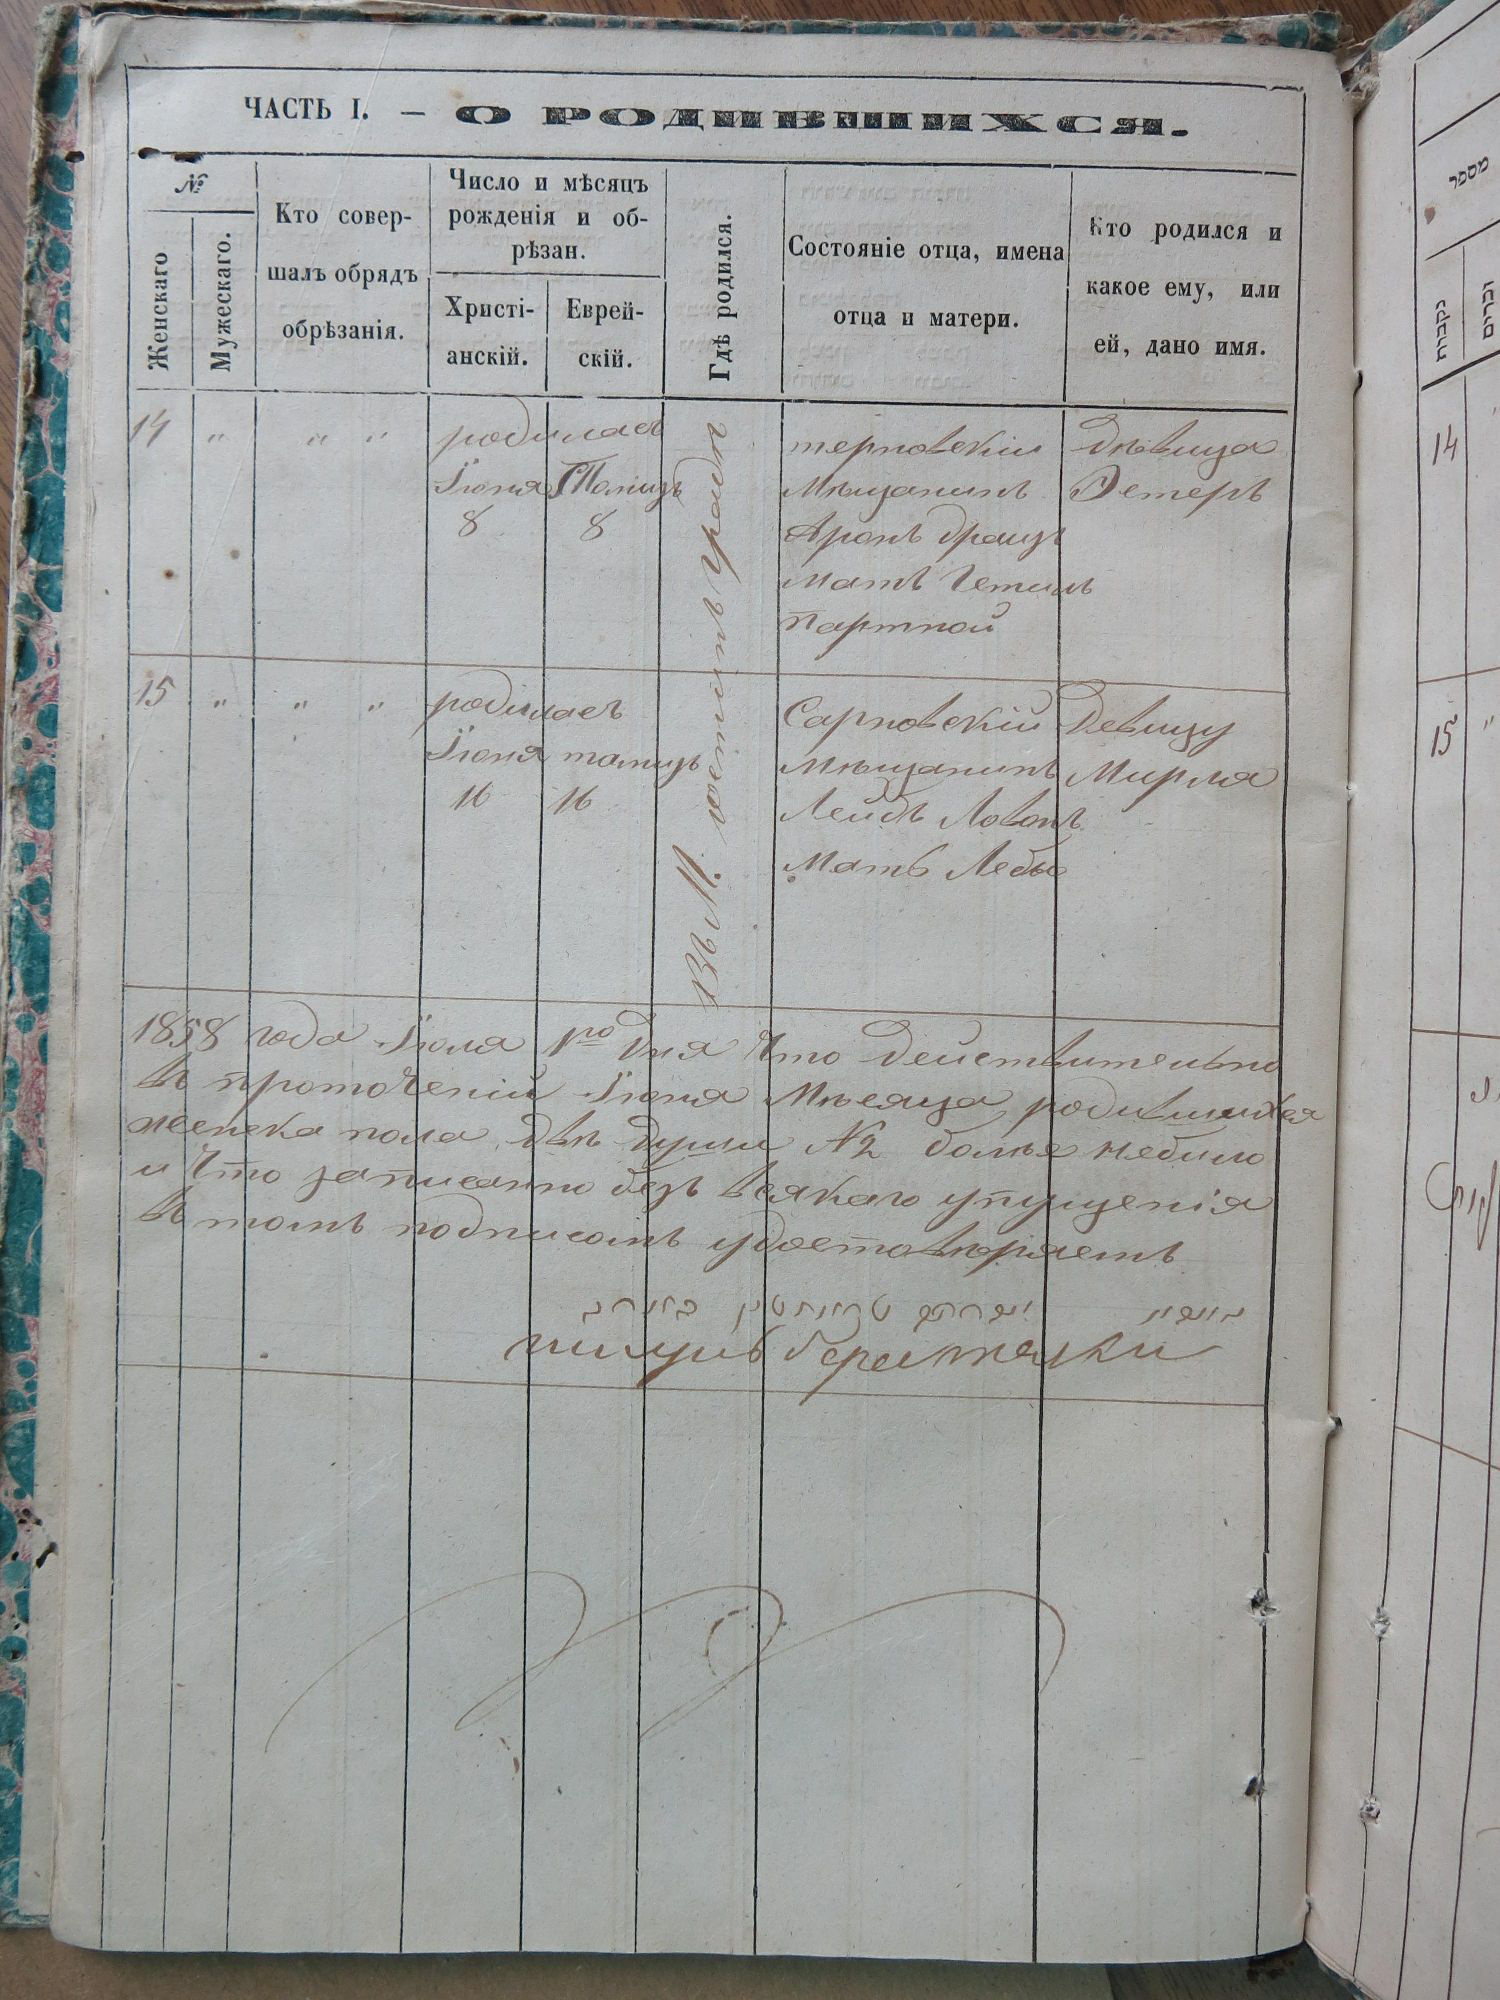 ЧАСТЬ I. — О РОДИВШИХСЯ.
№
Женскаго
Мужескаго.
Кто совер-
шалъ обрядъ
обрѣзанія.
Число и мѣсяцъ
рожденія и об-
рѣзан.
Христі-
анскій.
Еврей-
скій.
Гдѣ родился.
Состояніе отца, имена
отца и матери.
Кто родился и
какое ему, или
ей, дано имя.
14 " " " родилась
Іюня Тамузъ
8 8
терновскій
Мѣщанинъ
Аронъ
мать
Партной
дѣвица
Эстеръ
Въ М.
15 " " " родилась
Іюня тамузъ
16 16
Сарновскій
Мѣщанинъ
Лейбъ
Мать
Девицу
Мирля
1858 года Іюля 1го дня что действительно
въ проточеніи Іюня Мѣсяца родившихся
женска пола двѣ души №2 болѣя небило
и что записанно безъ всякаго упущенія
въ томъ подписомъ удостовѣряетъ
מספר
נקבות
זכרים
14
15 "